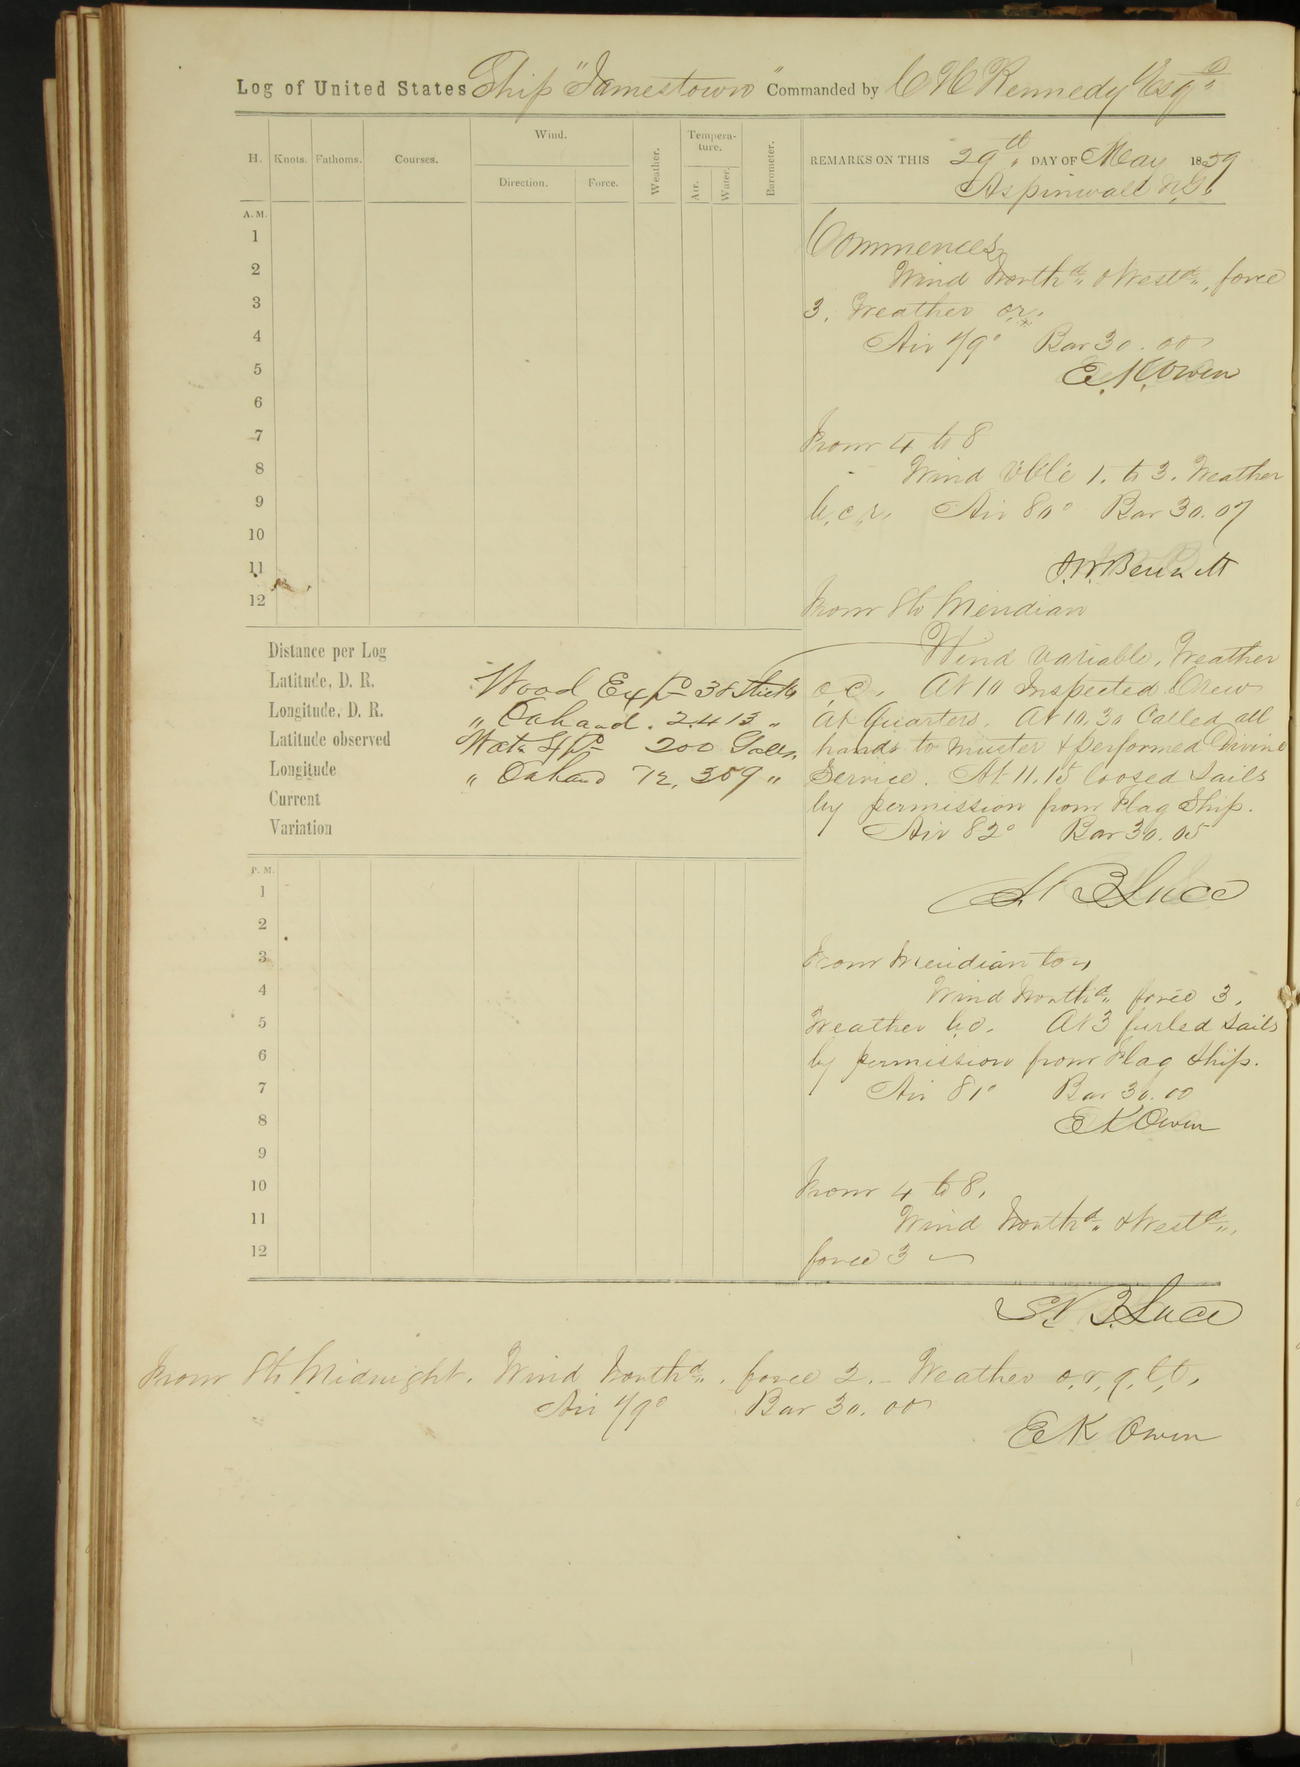 Log of United States Ship "Jamestown" Commanded by C H Kennedy Esqr
H. Knots. Fathoms. Courses. Wind. Direction. Force. Weather. Tempera-ture. Air. Water. Barometer.
REMARKS ON THIS 29th DAY OF May 1859
Aspinwall N.G.
A. M.
1
2
3
4
5
6
7
8
9
10
11
12
Commences
Wind Northd & Westd, force
3. Weather o.r.
Air 79° Bar 30.00
E. K. Owen
From 4 to 8
Wind Vble 1. to 3. Weather
b.c.r. Air 80° Bar 30.07
J. W. Bennett
From 8 to Meridian
Wind variable, Weather
o.c. At 10 Inspected Crew
at Quarters. At 10.30 Called all
hands to muster & performed Divine
Service. At 11.15 loosed sails
by permission from Flag Ship.
Air 82° Bar 30.05
S. B. Luce
Distance per Log
Latitude, D. R.
Longitude, D. R.
Latitude observed
Longitude
Current
Variation
Wood Expd 38 Sticks
" On hand. 2413 "
Water Expd 200 Galls.
" On hand 72,359 "
P. M.
1
2
3
4
5
6
7
8
9
10
11
12
From Meridian to 4
Wind Northd force 3.
Weather b.c. At 3 furled sails
by permission from Flag Ship.
Air 81° Bar 30.00
E K Owen
From 4 to 8.
Wind Northd & Westd,
force 3
S. B. Luce
From 8 to Midnight. Wind Northd. force 2. Weather o.r.q.l.t.
Air 79° Bar 30.00
E K Owen